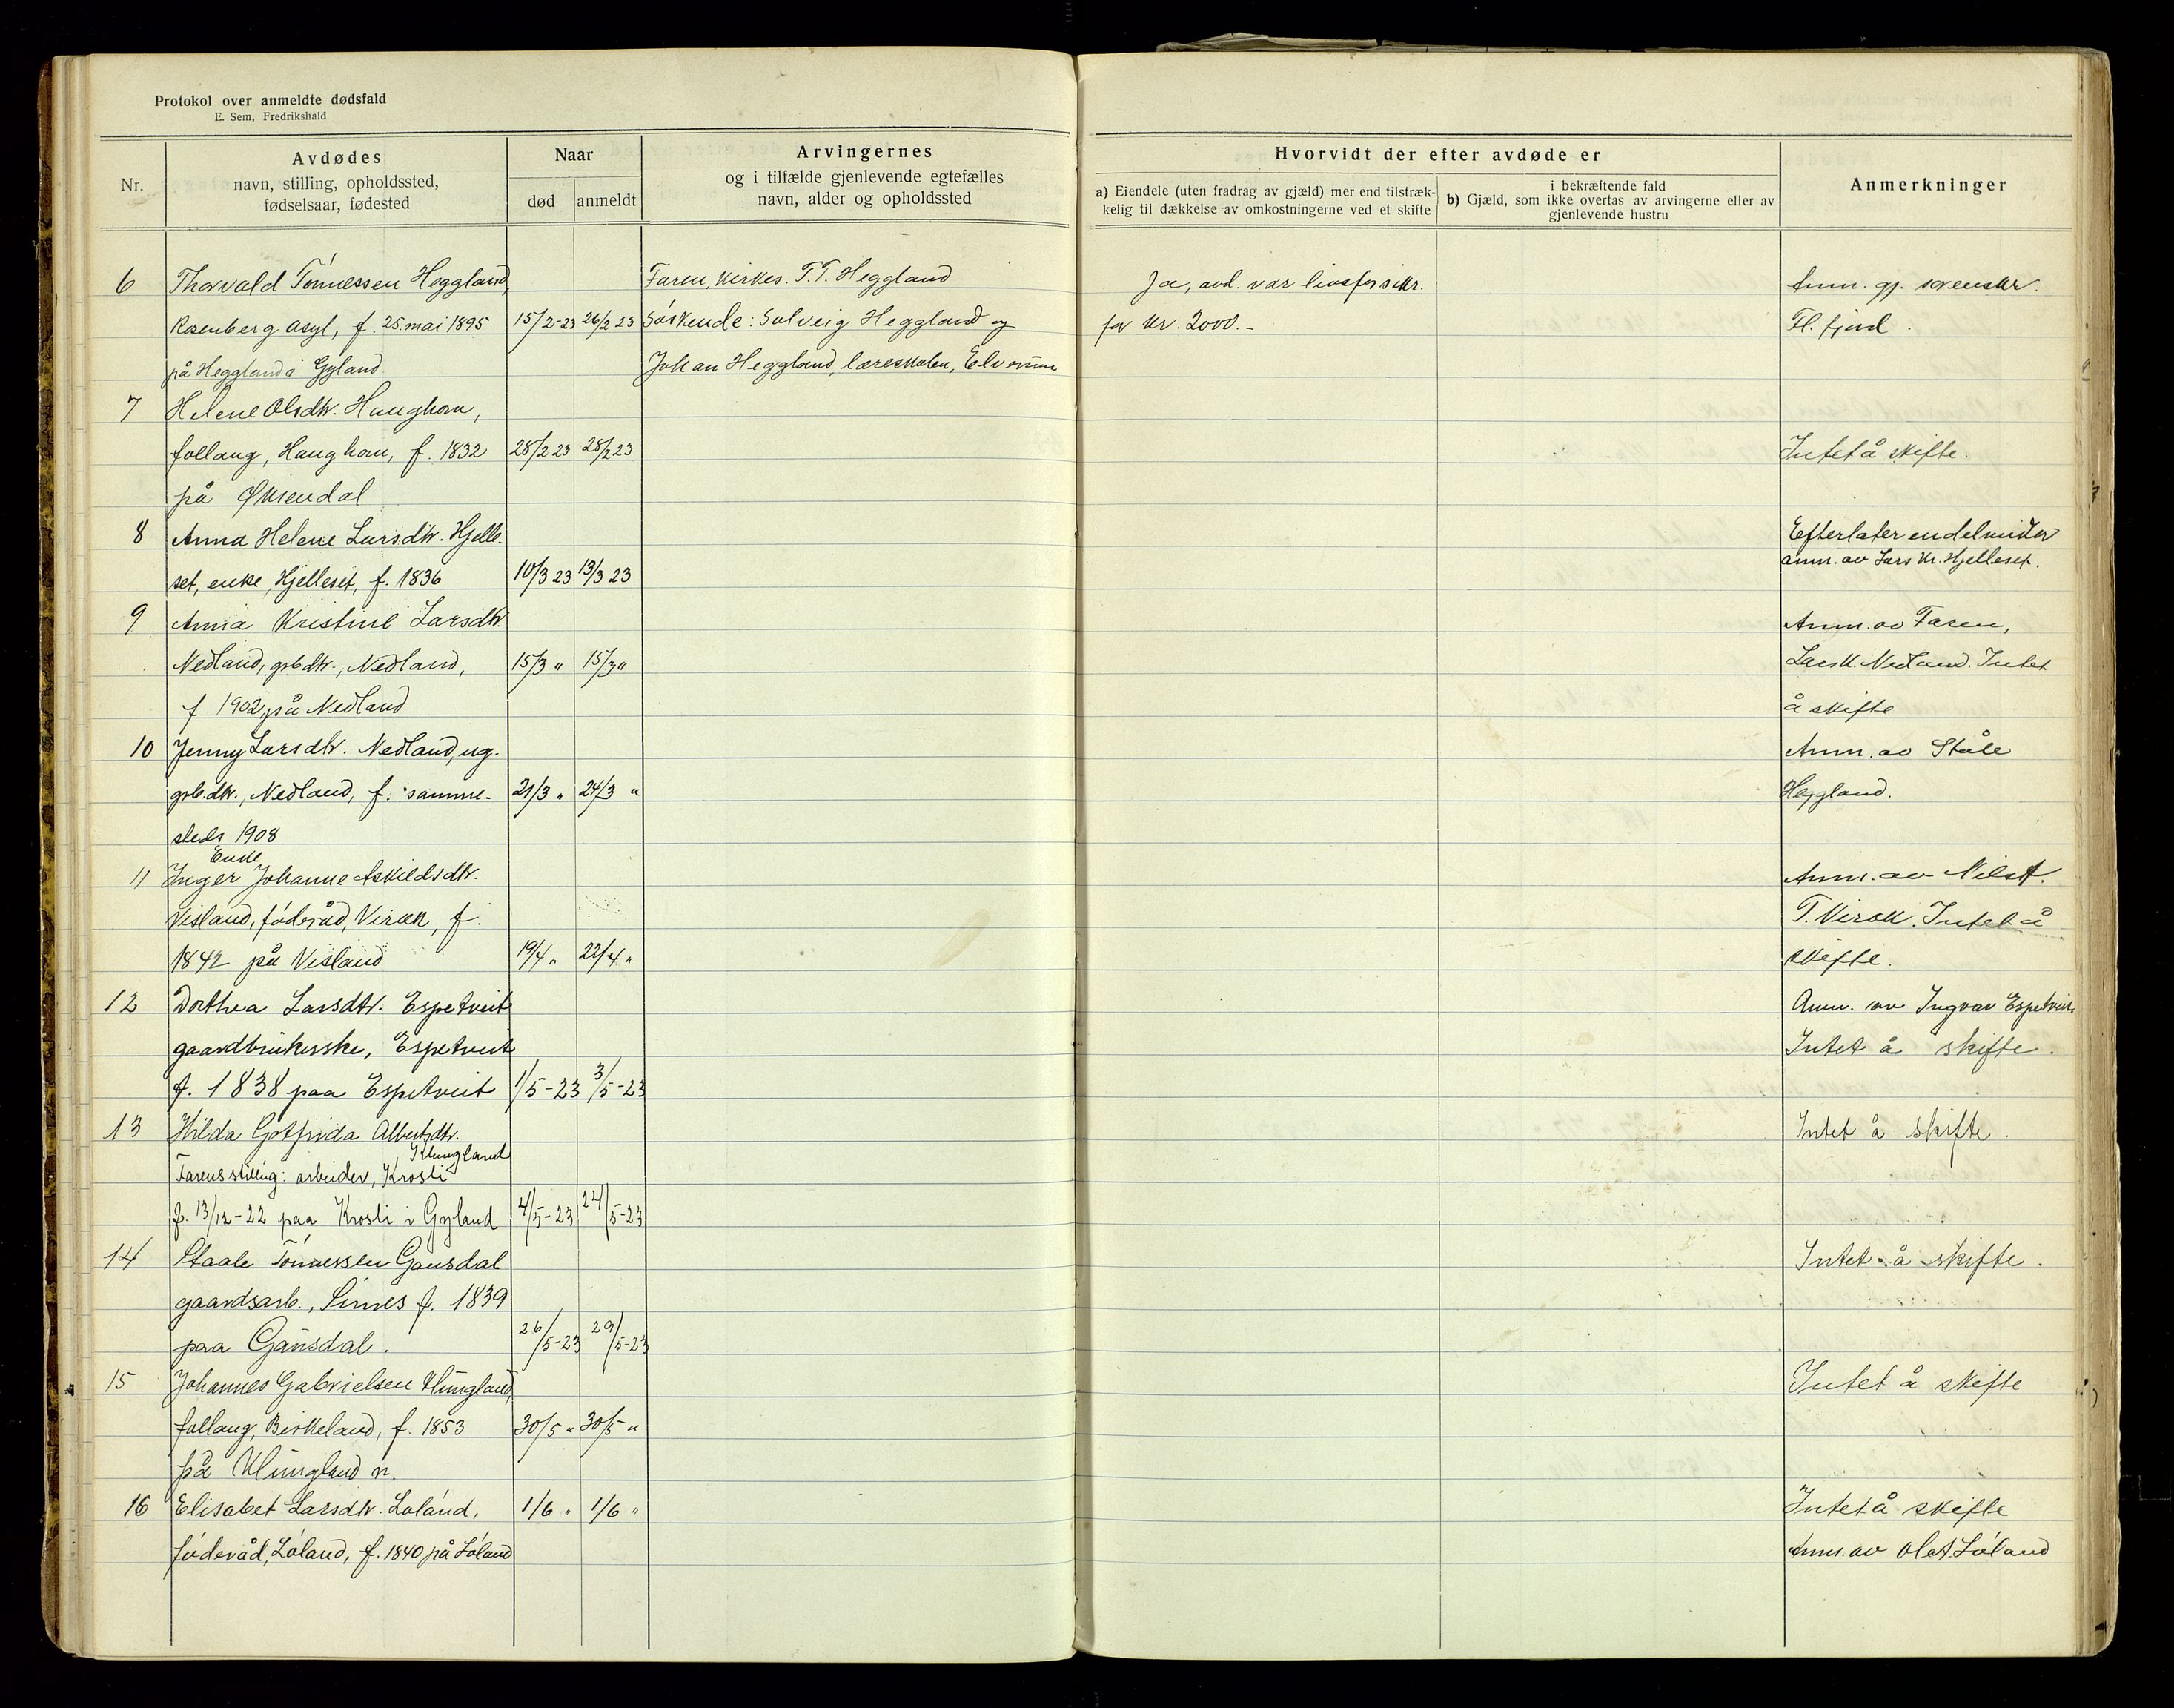 Protokol over anmeldte dødsfald
E. Sem, Fredrikshald
Nr.
Avdødes
navn, stilling, opholdssted,
fødselsaar, fødested
Naar
død
anmeldt
Arvingernes
og i tilfælde gjenlevende egtefælles
navn, alder og opholdssted
Hvorvidt der efter avdøde er
a) Eiendele (uten fradrag av gjæld) mer end tilstræk-
kelig til dækkelse av omkostningerne ved et skifte
i bekræftende fald
b) Gjæld, som ikke overtas av arvingerne eller av
gjenlevende hustru
Anmerkninger
6 Thorvald Tönnessen Heggland, Faren, kirkes. T. T. Heggland Ja, avd. var livsforsikr. Anm. gj. sorenskr.
Rosenberg asyl, f. 25. mai 1895 15/2-23 26/2 23 Söskende: Solveig Heggland og for kr. 2000.- Fl. fjord.
på Heggland i Gyland Johan Heggland, læreskolen, Elverum
7 Helene Olsdtr. Haughom,
follaug, Haughom, f. 1832 28/2 23 28/2 23 Intet å skifte.
på Øksendal
8 Anna Helene Larsdtr. Hjelle- Efterlater endel midler
set, enke, Hjelleset, f. 1836 10/3 23 13/3 23 anm. av Lars Kr. Hjelleset.
9 Anna Kristine Larsdtr. Anm. av Faren,
Nedland, grb.dtr., Nedland, 15/3 " 15/3 " Lars K. Nedland. Intet
f 1902 på Nedland å skifte
10 Jenny Larsdtr. Nedland, ug. Anm. av Ståle
grb.dtr., Nedland, f. samme- 21/3 " 24/3 " Heggland.
steds 1908
Enke
11 Inger Johanne Askildsdtr. Anm. av Nils A.
Visland, föderåd, Virak, f. T. Virak. Intet å
1842 på Visland 19/4 " 22/4 " skifte.
12 Dorthea Larsdtr. Espetveit Anm. av Ingvar Espetveit
gaardbrukerske, Espetveit Intet å skifte.
f. 1838 paa Espetveit 1/5-23 3/5-23
13 Hilda Gotfrida Albertsdtr. Intet å skifte.
Klungland
Farens stilling: arbeider, Krosli
f. 13/12-22 paa Krosli i Gyland 4/5-23 24/5-23
14 Staale Tönnessen Gausdal Intet å skifte.
gaardsarb., Sirnes f. 1839
paa Gausdal. 26/5-23 29/5-23
15 Johannes Gabrielsen Klungland, Intet å skifte
follaug, Birkeland, f. 1853 30/5 " 30/5 "
på Klungland n.
16 Elisabet Larsdtr. Löland, 1/6 " 1/6 " Intet å skifte
föderåd, Löland, f. 1840 på Löland Anm. av Ole A. Löland